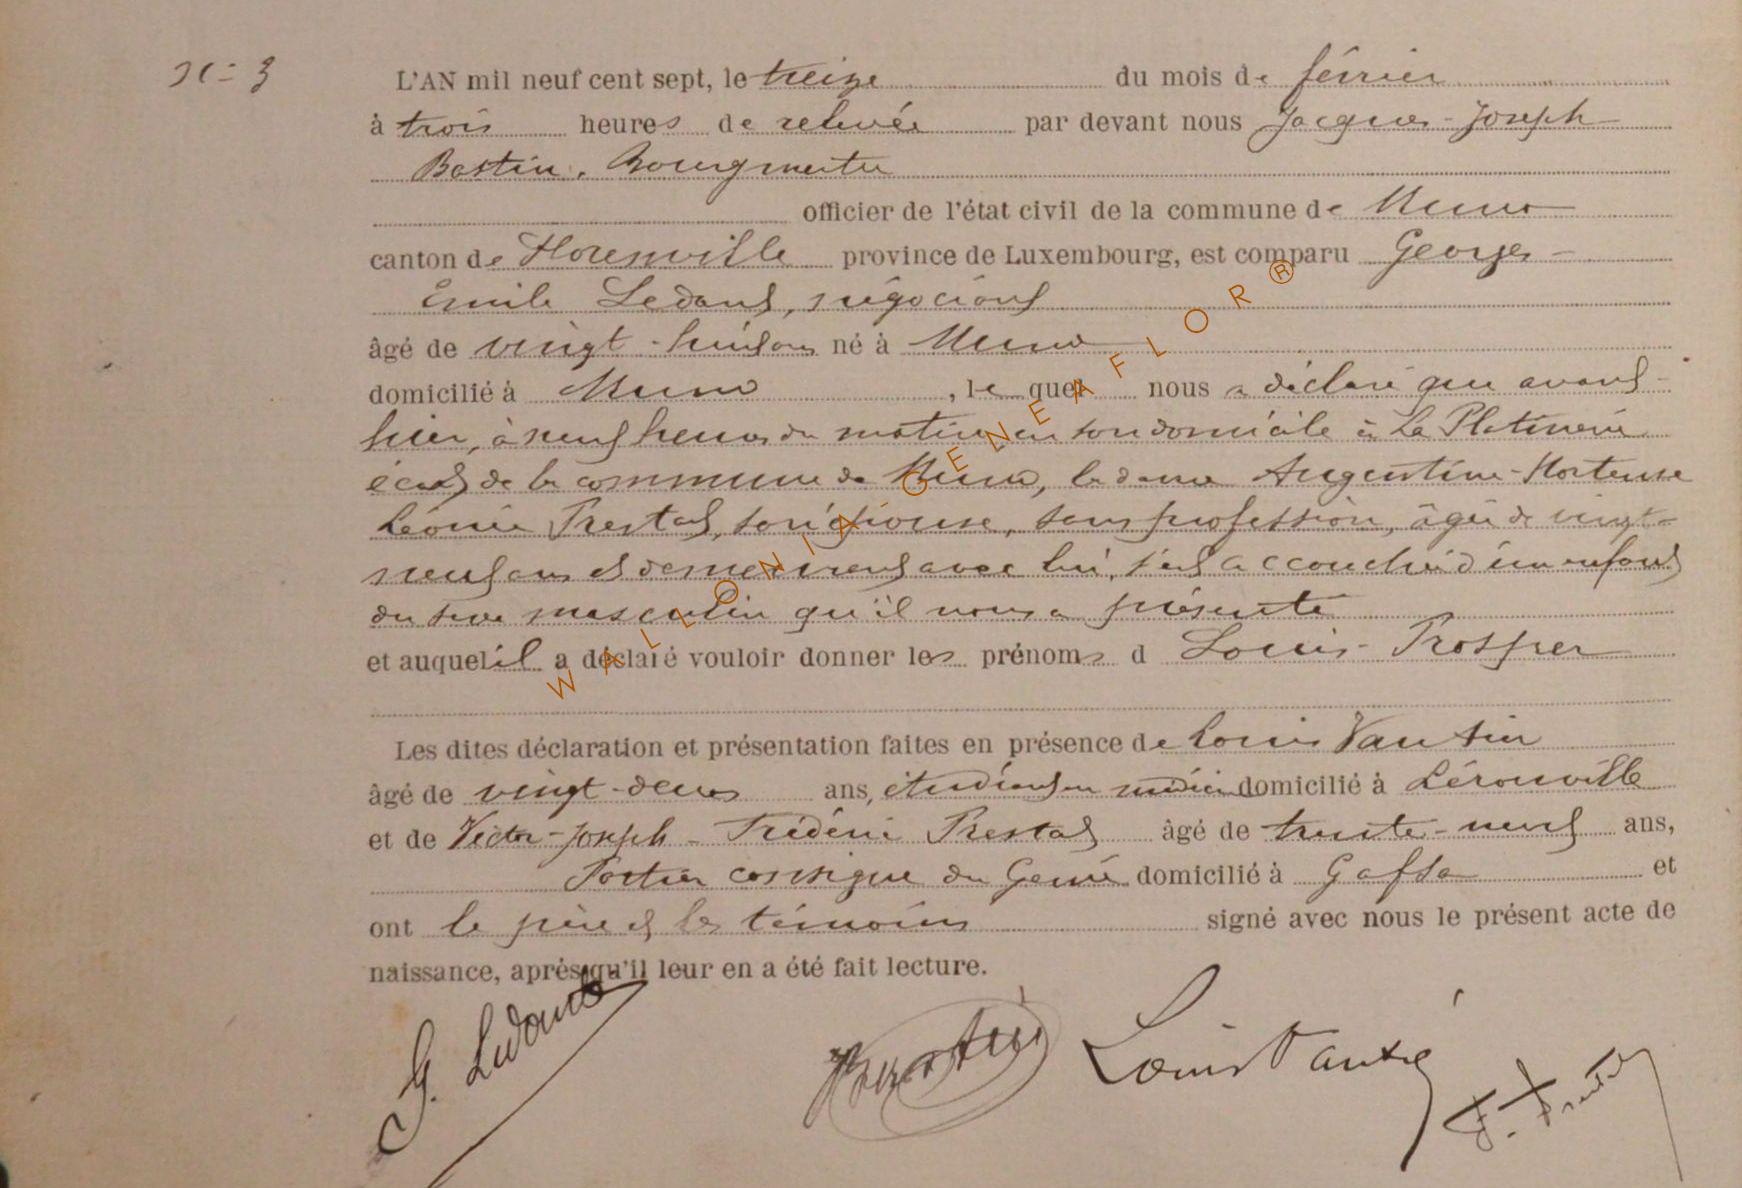 N° 3
L'AN mil neuf cent sept, le treize du mois de février
à trois heures de relevée par devant nous Jacques-Joseph
Bastin, Bourgmestre
officier de l'état civil de la commune de Muno
canton de Florenville province de Luxembourg, est comparu Georges-
Emile Ledant, négociant
âgé de vingt-huit ans né à Muno
domicilié à Muno, le quel nous a déclaré que avant-
hier, à neuf heures du matin, en son domicile à La Platinerie
écart de la commune de Muno, la dame Augentine-Hortense
Léonie Prestat, son épouse, sans profession, âgée de vingt-
neuf ans et demeurant avec lui, s'est accouchée d'un enfant
du sexe masculin qu'il nous a présenté
et auquel il a déclaré vouloir donner les prénoms d Louis-Prosper
Les dites déclaration et présentation faites en présence de Louis Vautrin
âgé de vingt-deux ans, étudiant en médecine domicilié à Lérouville
et de Victor-Joseph-Frédéric Prestat âgé de trente-neuf ans,
Portier consigne du Génie domicilié à Gafsa et
ont le père et les témoins signé avec nous le présent acte de
naissance, après qu'il leur en a été fait lecture.
G. Ledant Bastin Louis Vautrin F. Prestat
WALLONIA GENEAFLOR ®